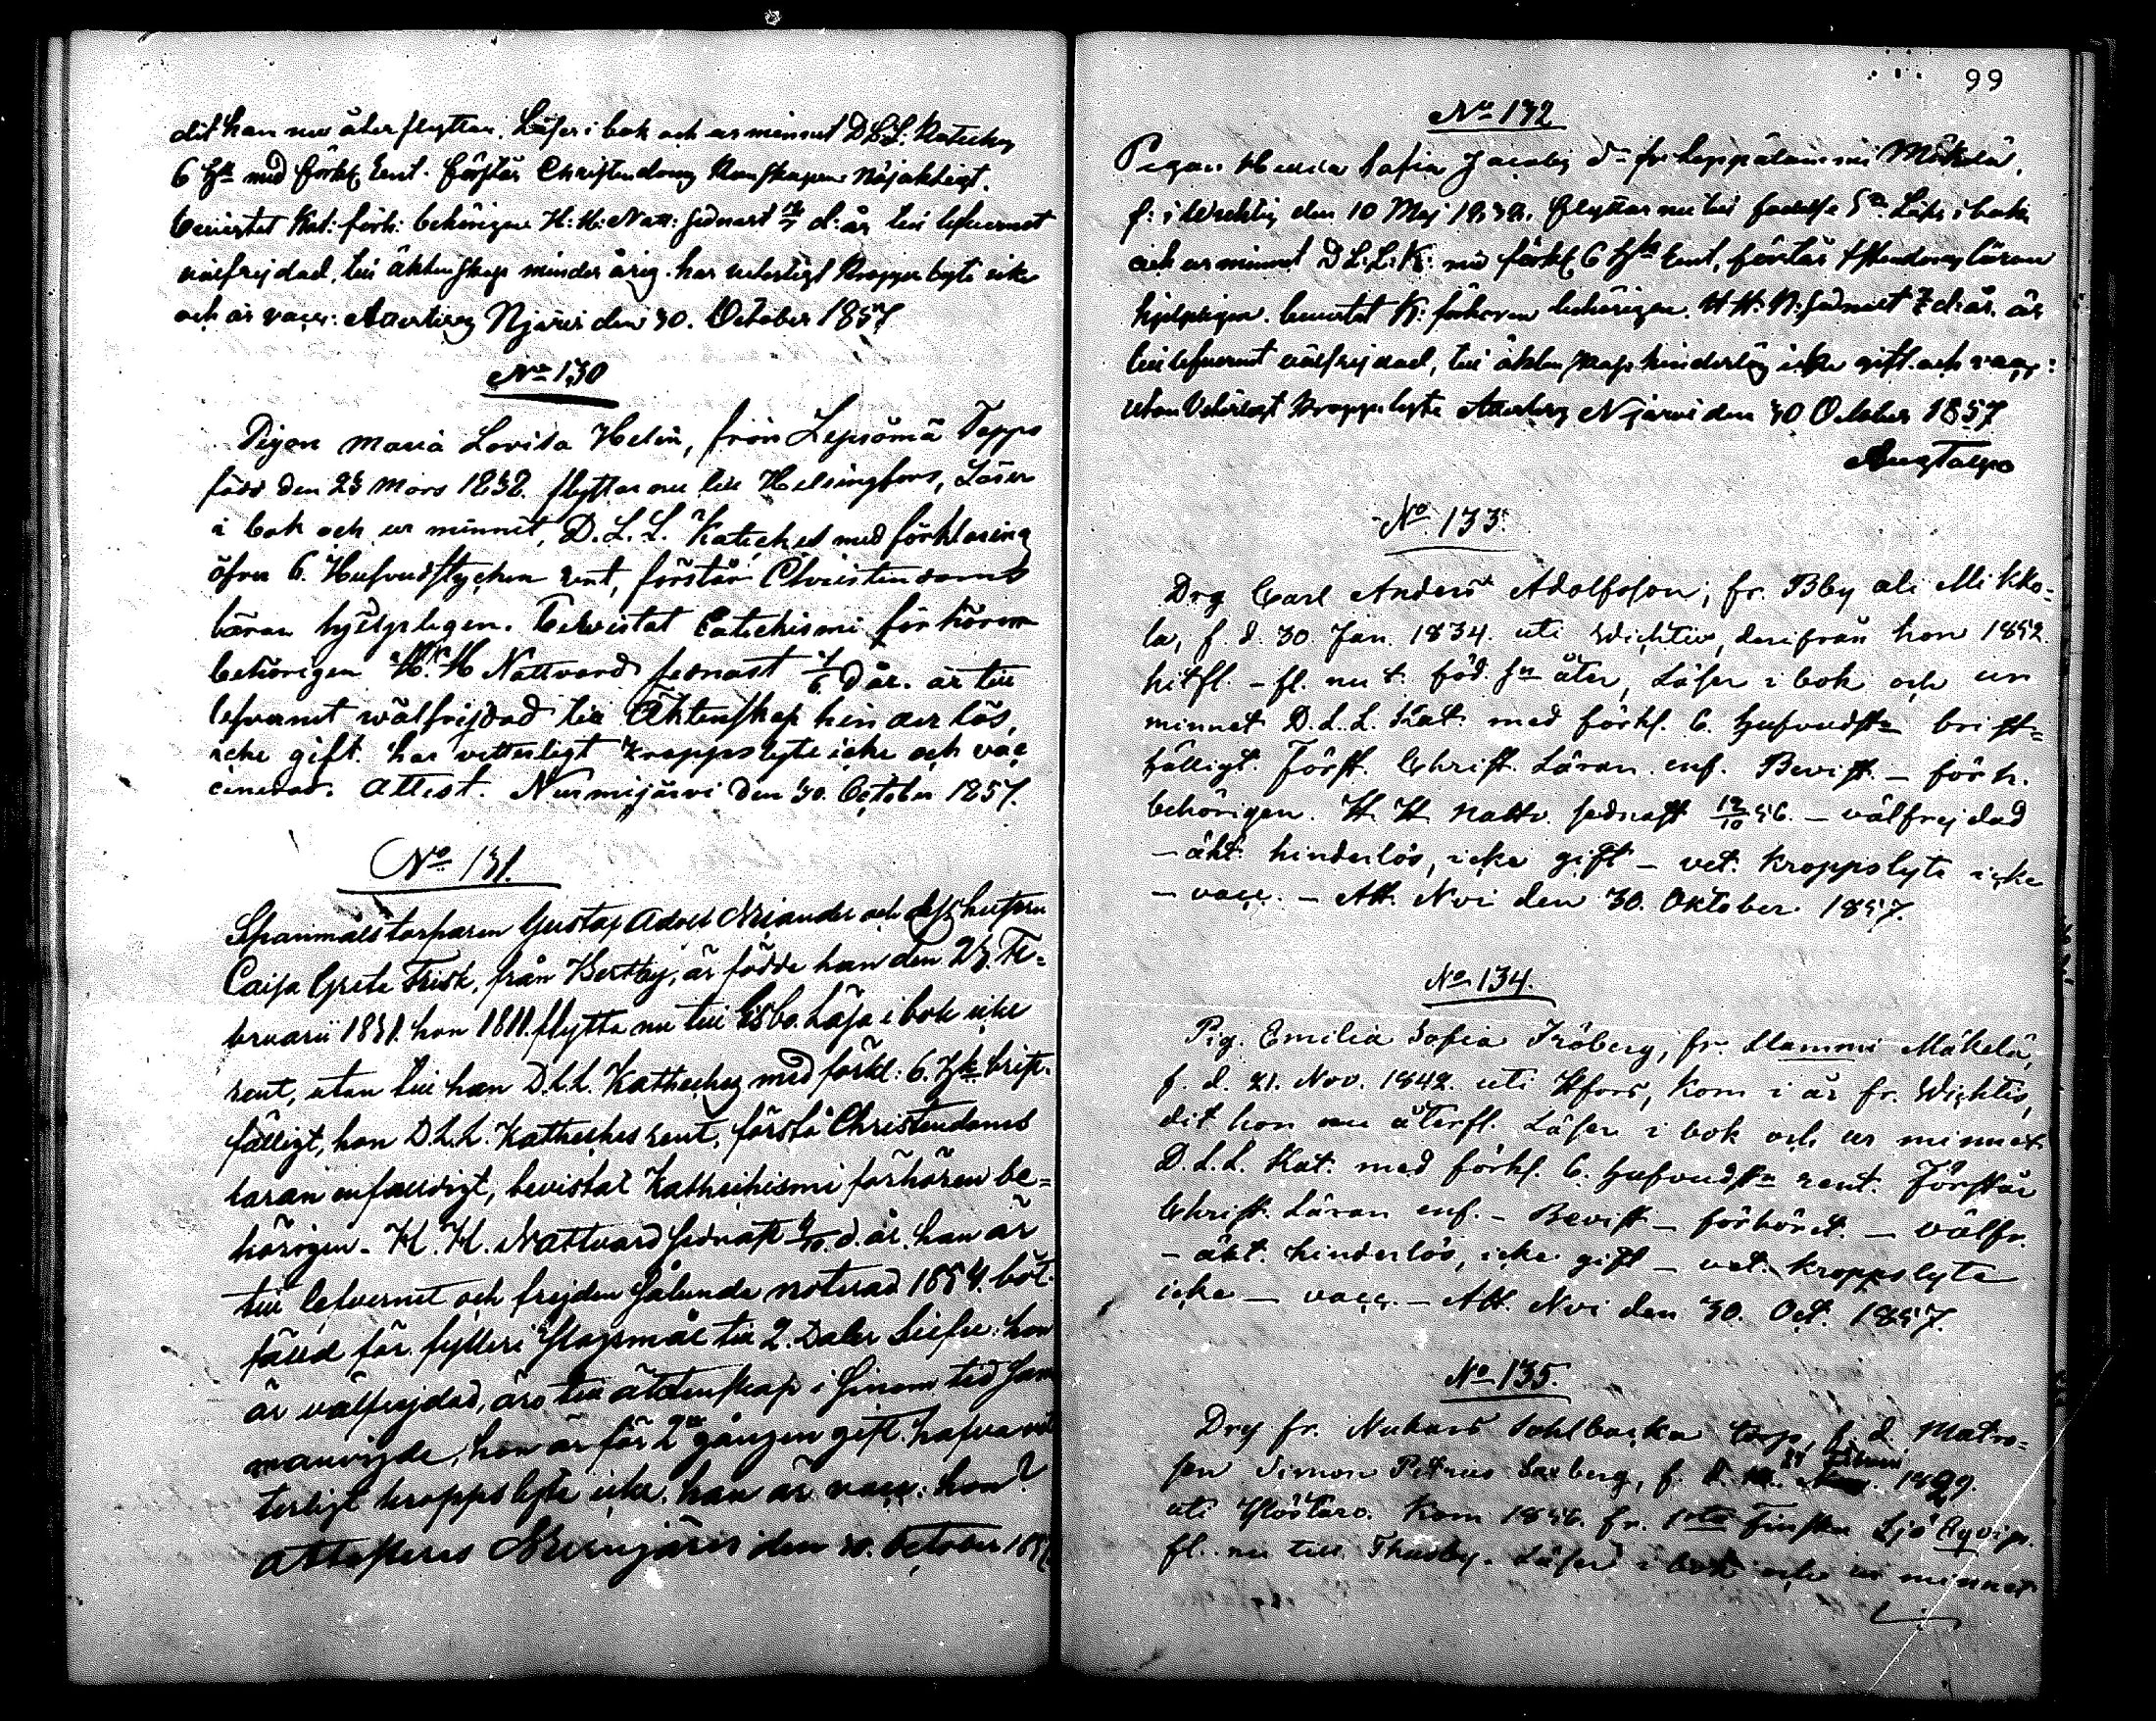 dit han nu återflyttar. Läser i bok och ur minnet D.L.L. Kateches
6 H.st. med förkl. rent. förstår Christendoms Kunskapen nöjaktigt.
bevistat Kat: förh: behörigen H: H: Natt: sednast d: år till lefvernet
välfrejdad, till äktenskap minderårig. har veterligt Kropps lyte icke
och är vacc: Attesteras Njärvi den 30. October 1857
No 130
Pigan Maria Lovisa Helin, från Lepsömä Teppo
född den 23 Mars 1838. flyttar nu till Helsingfors, Läser
i bok och ur minnet, D. L. L. Kateches med förklaring
öfver 6. Hufvudstycken rent, förstår Christendoms
läran hjelpligen. bevistat Catechismi förhören
behörigen H. H Nattvard sednast 7/6 d år. är till
lefvernet wälfrejdad till Äktenskap hinderlös,
icke gift. har vetterligt kroppslyte icke och vac
cinerad. Attest. Nurmijärvi den 30. October 1857.
No 131.
Spanmålstorparen Gustaf Adolf Niander och dess hustru
Caisa Greta Frisk, från Bertby, är födde han den 23. Fe=
bruarii 1831. hon 1811. flytta nu till Esbo. Läsa i bok icke
rent, utan till han D.L.L. Katheches med förkl: 6. H.st. brist-
fälligt, hon D.L.L. Katheches rent, förstå Christendoms
läran enfaldigt, bevistat Kathechismi förhören be=
hörigen. H. H. Nattvard sednast d. år. han är
till lefvernet och frejden sålunda noterad 1854. böt-
fälld för fylleri slagsmål till 2. Daler Silfver: hon
är välfrejdad, äro till äktenskap i sinom tid sam
manvigde, hon är för 2dra gången gift. hafva vet
terligt kroppslyte icke. han är vacc: hon?
attesteras Nurmijärvi den 30. October 1857.
99
No 132
Pigan Sofia Jacobs dr fr. Leppälammi Mäkelä,
f: i Wichtis den 10 Maj 1838. flyttar nu till födelse Sn. Läser i bok
och ur minnet D: L: L: K: med förkl 6 H.st. rent, förstår Christendoms läran
hjelpligen. bevistat K: förhören behörigen. H H: N: sednast d: år. är
till lefvernet välfrejdad, till äktenskap hinderlös icke gift. och vacc:
utan Veterligt Kropps lyte Attesteras Njärvi den 30 October 1857
No 133.
Drg Carl Anders Adolfsson, fr. Bby ali Mikko=
la, f. d. 30. Jan. 1834. uti Wichtis, derifrån hon 1852.
hitfl. - fl. nu t. föd. Sn åter, Läser i bok och ur
minnet D. L. L. Kat. med förkl. 6. Hufvudst. brist=
fälligt. Först. Christ. Läran enf. Bevist. - förh.
behörigen. H. H. Nattv. sednast 12/10 56. - välfrejdad
- äkt. hinderlös, icke gift - vet. kroppslyte icke
- vacc. - Att. Nvi den 30. Oktober 1857.
No 134.
Pig. Emilia Sofia Fröberg, fr. Mäkelä,
f. d. 21. Nov. 1842. uti Hfors, kom i år fr. Wichtis,
dit hon nu återfl. Läser i bok och ur minnet
D. L. L. Kat. med förkl. 6. Hufvudst. rent. Förstår
Christ. Läran enf. - Bevist. - förhöret. - välfr.
- äkt. hinderlös, icke gift - vet. kroppslyte
icke - vacc. - Att. Nvi den 30. Oct. 1857.
No 135.
Drg fr. Nukars Sohlbacka torp, f. d. Matro=
sen Simon Petrus f. d. 1829.
uti Kom 1856. fr. 1sta Finska Sjö Eqvip.
fl. nu till Thusby. Läser i bok och ur minnet